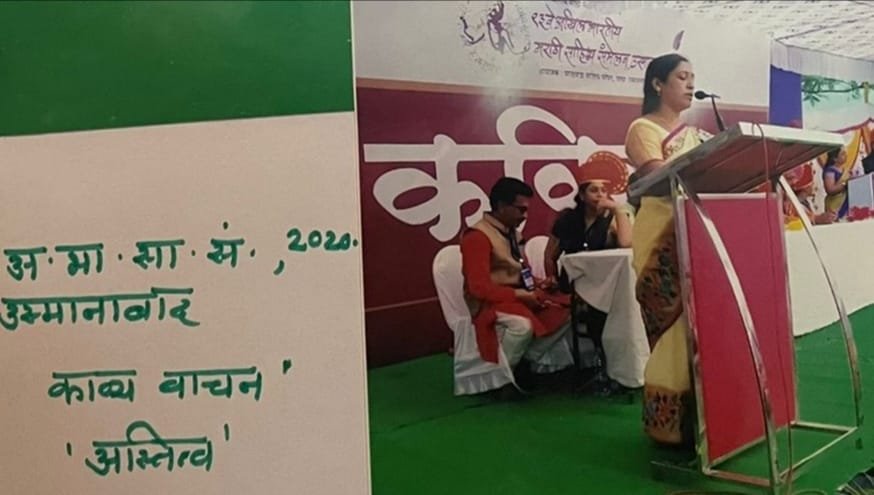 अ. भा. सा. सं., 2020.
उस्मानाबाद
काव्य वाचन'
'अस्तित्व'
९३वे अखिल भारतीय
मराठी साहित्य संमेलन
कवि